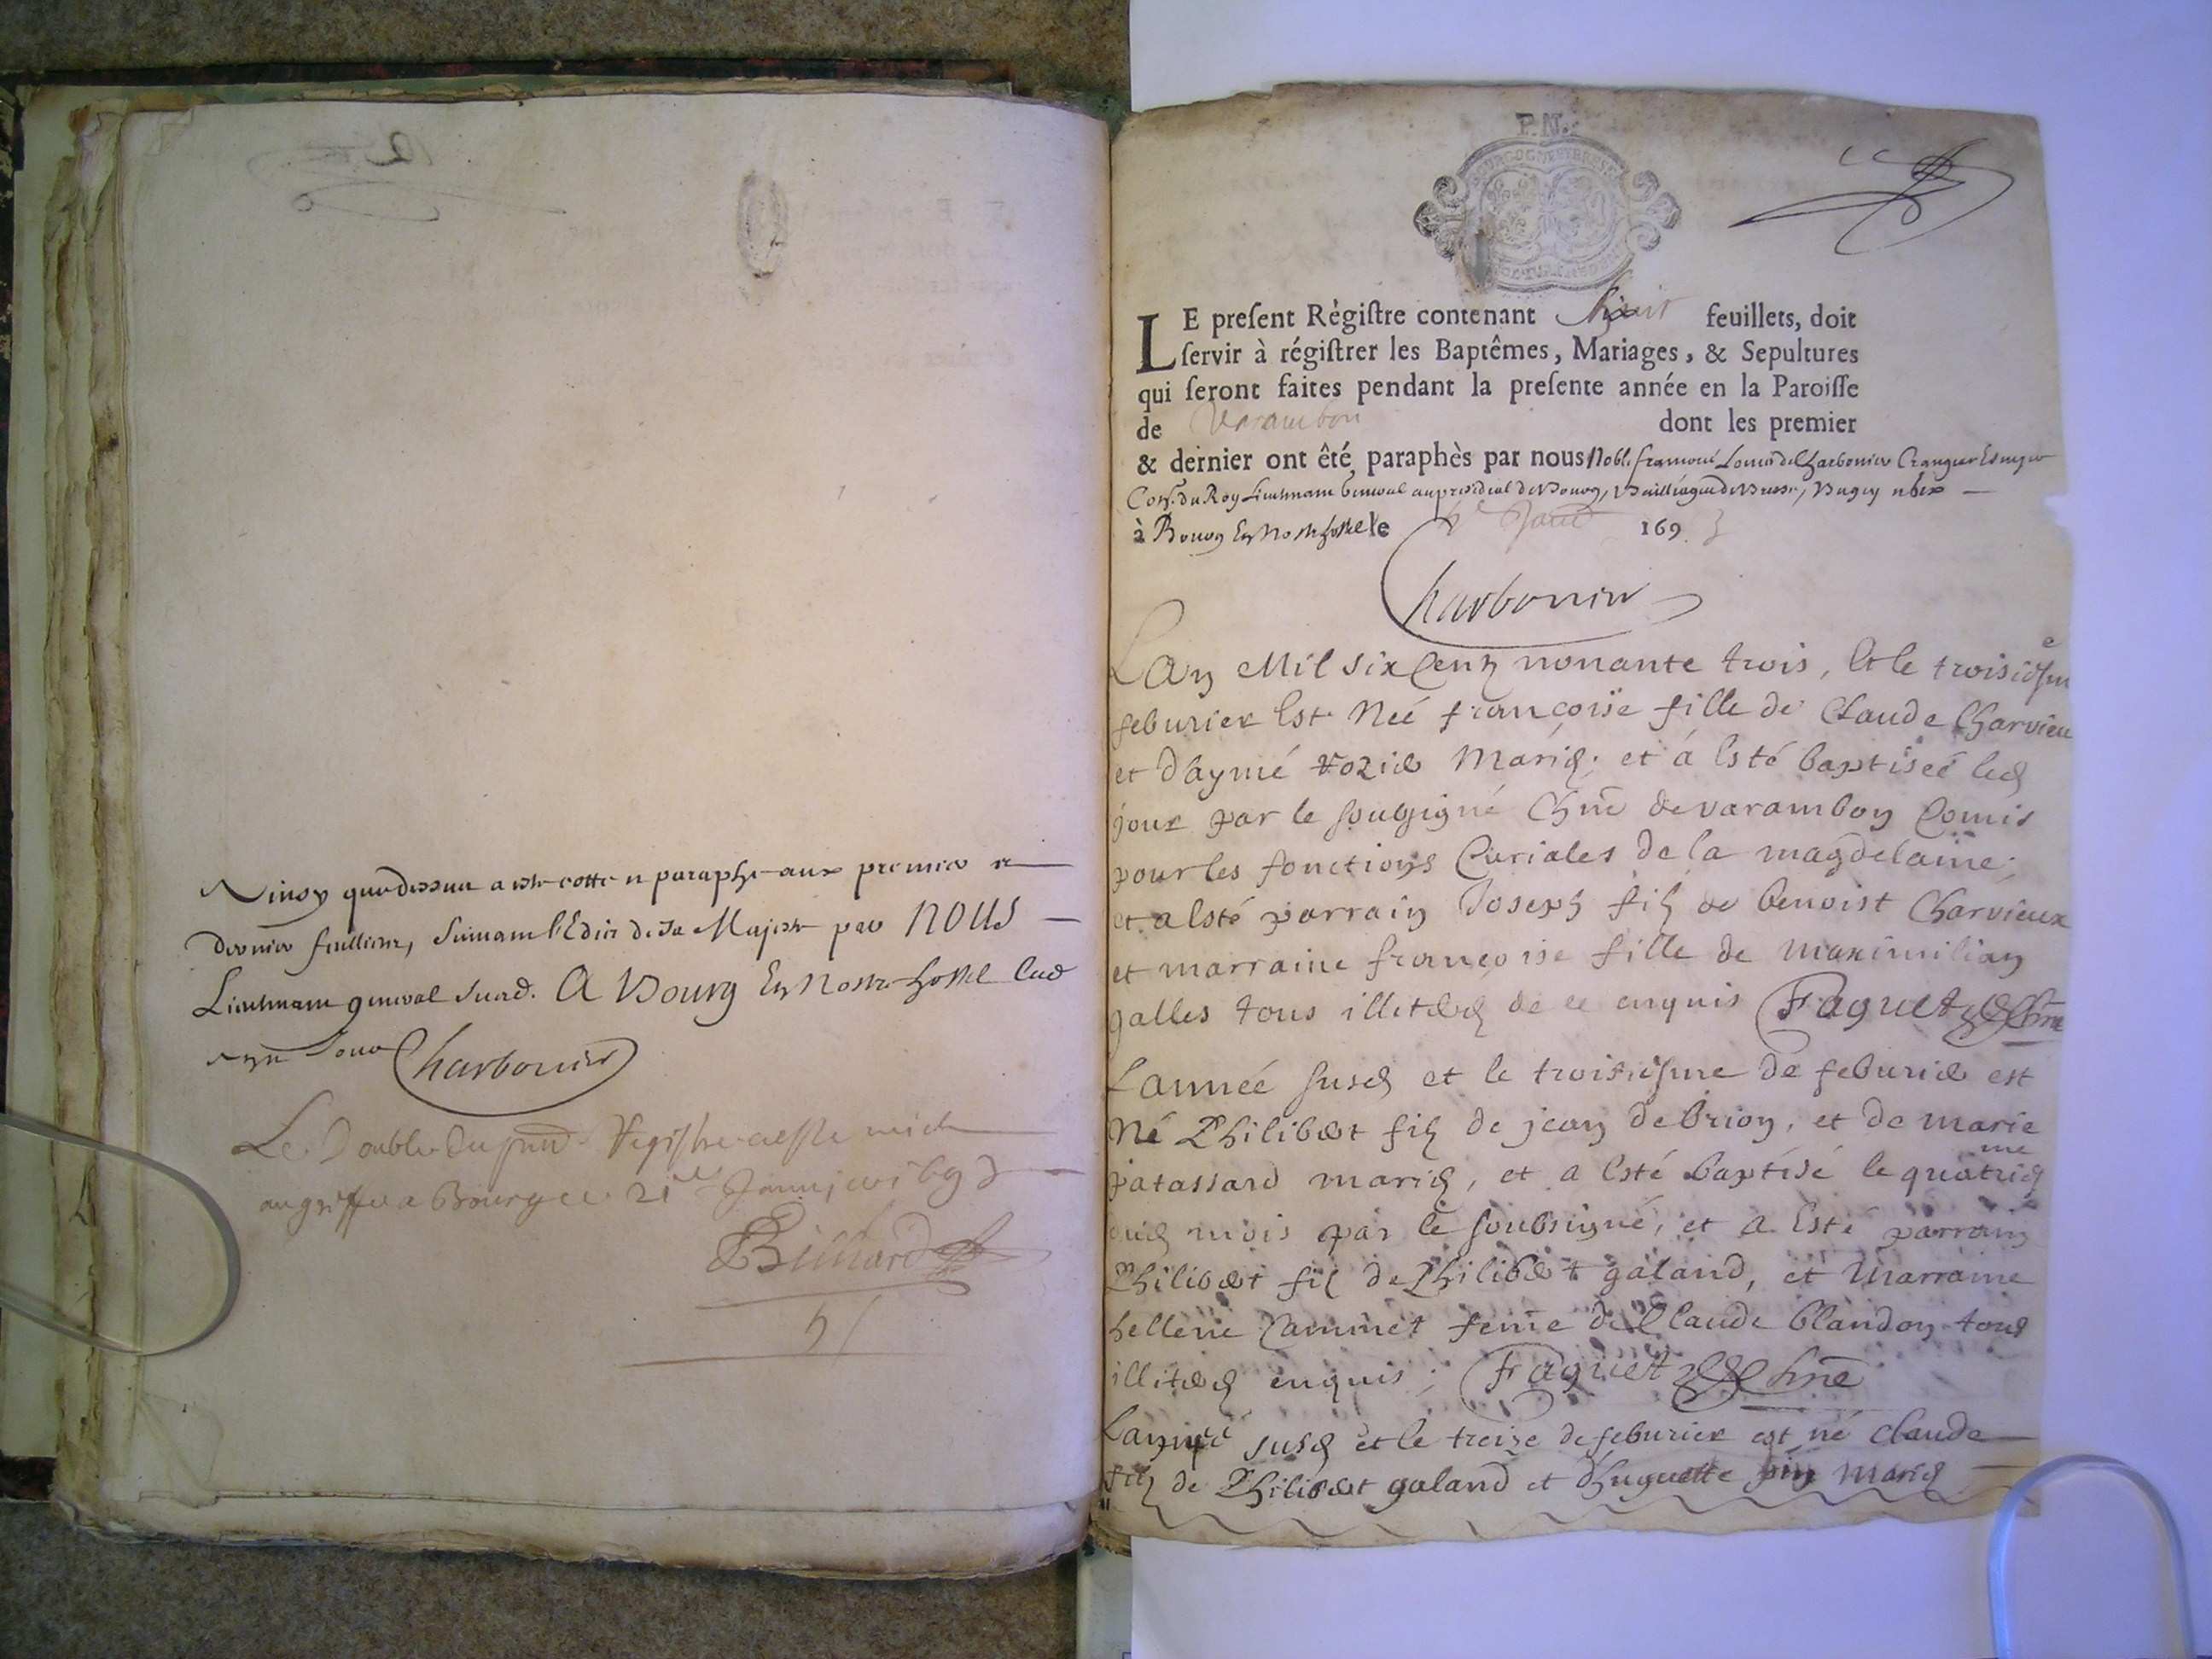 Ainsy que dessus a esté cotté et paraphé aux premier et
dernier feuillets, suivant l'Edit de sa Majesté par NOUS
Lieutenant general susd. A Bourg En Nostre hostel Led
jour Charbonier
Le Double du pnt Registre a esté
au greffe a Bourg ce 21e 169
Billiard
P. N.
LE present Règistre contenant huit feuillets, doit
servir à régistrer les Baptêmes, Mariages, & Sepultures
qui seront faites pendant la presente année en la Paroisse
de Varambon dont les premier
& dernier ont êté paraphès par nous Noble Louis de Charbonier Crangier Escuyer
Cons. du Roy Lieutenant General au presidial de Bourg, Bailliage de Bresse, Bugey
à Bourg En Nostre hostel le 169 3
Charbonier
Lan Mil six Centz nonante trois, Et le troisiesme
feburier Est Neé françoise fille de Claude Charvieu
et d'aymé rozier Mariés; et á Esté baptiseé led
jour par le soubsigné Chne de varambon Comis
pour les fonctions Curiales de la magdelaine;
et a Esté parrain Joseph filz de benoist Charvieux
et marraine françoise fille de maximilian
galles tous illiterés de ce enquis Faguet Chne
Lanneé susd et le troisiesme de feburier est
Né Philibert filz de jean debrion, et de marie
patassard mariés, et a Esté baptisé le quatriesme
dud mois par le soubsigné, et a Esté parrain
Philibert filz de Philibert galand, et Marraine
hellene Cammet feme de Claude blandon tous
illiterés enquis; Faguet Chne
Lanneé susd et le treize de feburier est né claude
filz de Philibert galand et d'huguette pin Mariés